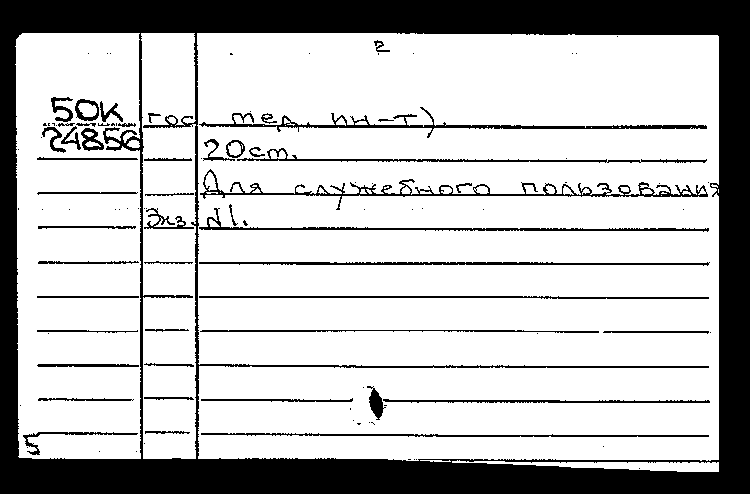 2
50К гос. мед. ин-т).
24856 20ст.
Для служебного пользования
Экз. N1.
5